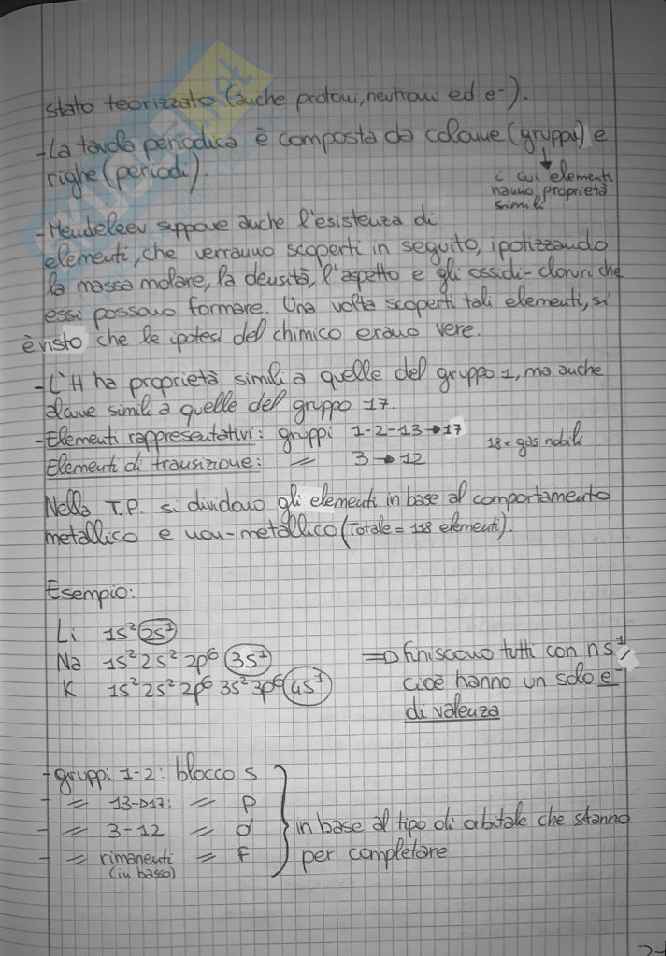 stato teorizzato (anche protoni, neutroni ed e⁻).
-La tavola periodica è composta da colonne (gruppi) e
righe (periodi).
i cui elementi
hanno proprietà
simili
-Mendeleev suppone anche l'esistenza di
elementi, che verranno scoperti in seguito, ipotizzando
la massa molare, la densità, l'aspetto e gli ossidi-cloruri che
essi possono formare. Una volta scoperti tali elementi, si
è visto che le ipotesi del chimico erano vere.
-L'H ha proprietà simili a quelle del gruppo 1, ma anche
alcune simili a quelle del gruppo 17.
-Elementi rappresentativi: gruppi 1-2-13→17 18 = gas nobili
Elementi di transizione: = 3→12
Nella T.P. si dividono gli elementi in base al comportamento
metallico e non-metallico (Totale = 118 elementi).
Esempio:
Li 1s² 2s¹
Na 1s² 2s² 2p⁶ 3s¹
K 1s² 2s² 2p⁶ 3s² 3p⁶ 4s¹
⇒ finiscono tutti con ns¹,
cioè hanno un solo e⁻
di valenza
-gruppi 1-2: blocco s
- = 13→17: = p
- = 3-12 = d
- = rimanenti = f
(in basso)
in base al tipo di orbitale che stanno
per completare